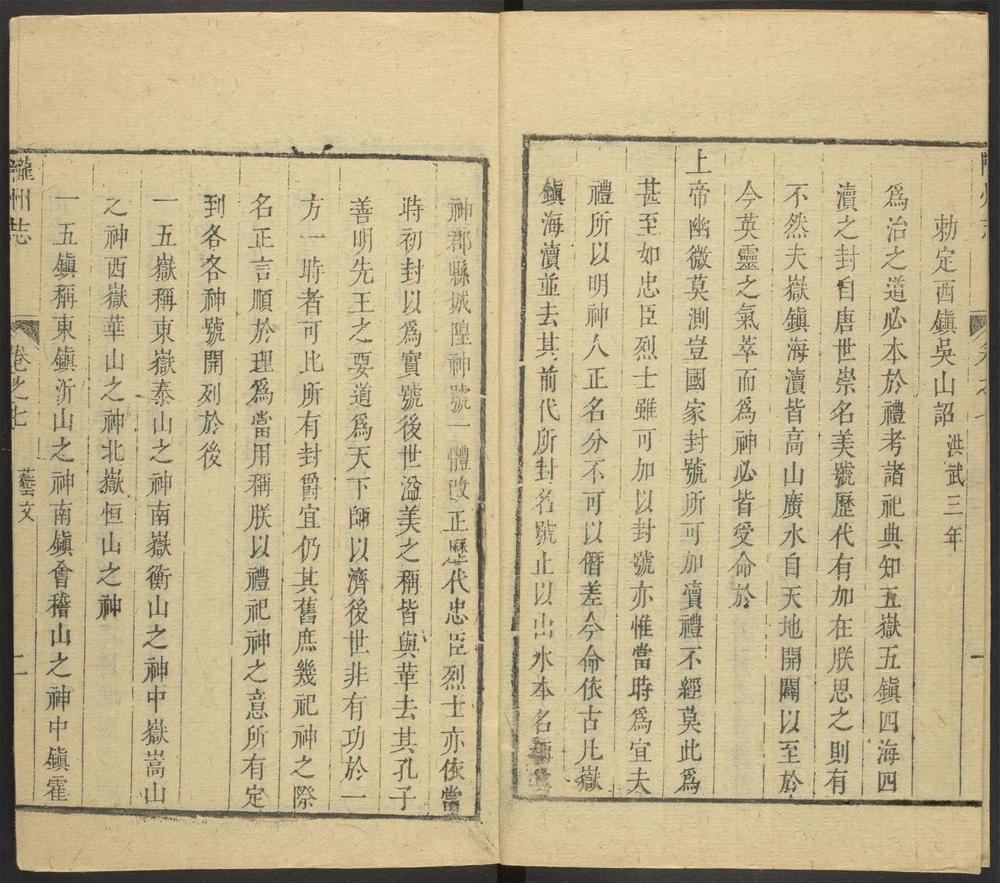 勅定西鎮吳山詔 洪武三年
爲治之道必本於禮考諸祀典知五嶽五鎮四海四
瀆之封自唐世崇名美號歷代有加在朕思之則有
不然夫嶽鎮海瀆皆高山廣水自天地開闢以至於
今英靈之氣萃而爲神必皆受命於
上帝幽微莫測豈國家封號所可加瀆禮不經莫此爲
甚至如忠臣烈士雖可加以封號亦惟當時爲宜夫
禮所以明神人正名分不可以僭差今命依古凡嶽
鎮海瀆並去其前代所封名號止以山水本名稱
神郡縣城隍神號一體改正歷代忠臣烈士亦依當
時初封以爲實號後世溢美之稱皆與革去其孔子
善明先王之要道爲天下師以濟後世非有功於一
方一時者可比所有封爵宜仍其舊庶幾祀神之際
名正言順於理爲當用稱朕以禮祀神之意所有定
到各各神號開列於後
一五嶽稱東嶽泰山之神南嶽衡山之神中嶽嵩山
之神西嶽華山之神北嶽恒山之神
一五鎮稱東鎮沂山之神南鎮會稽山之神中鎮霍
隴州志 卷之七 藝文 二